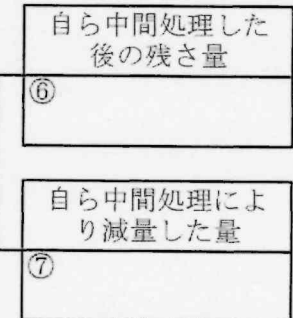 自ら中間処理した
後の残さ量
⑥
自ら中間処理によ
り減量した量
⑦